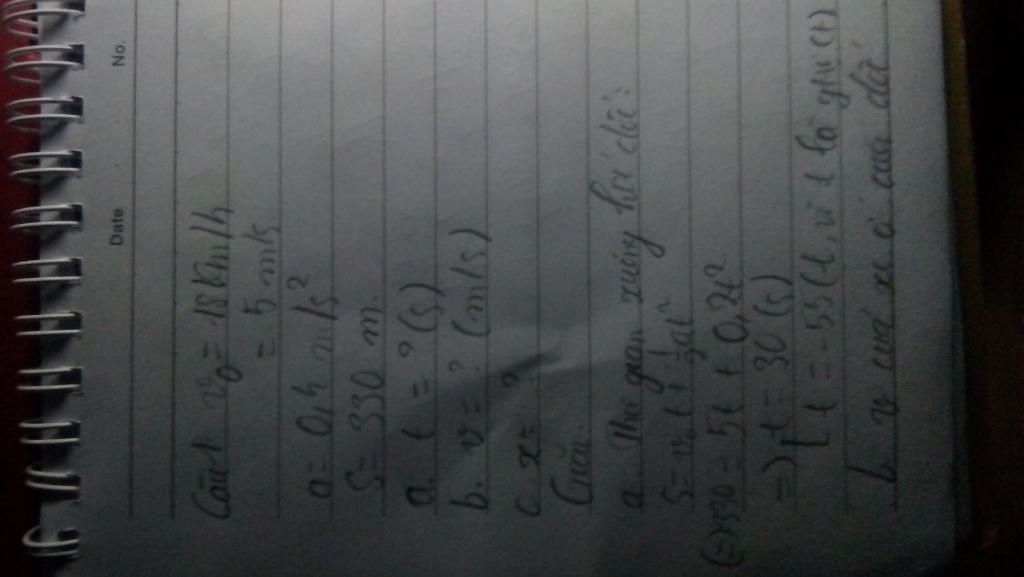 Date No.
v₀ = 18 km/h
= 5 m/s
a = 0,4 m/s²
S = 330 m.
a. t = ? (s)
b. v = ? (m/s)
c. x = ?
Giải.
a. Thời gian xuống hết dốc:
S = v₀t + ½at²
(=) 330 = 5t + 0,2t²
=) t = 30 (s)
t = -55 (l, vì t là
b. v của xe ở dốc